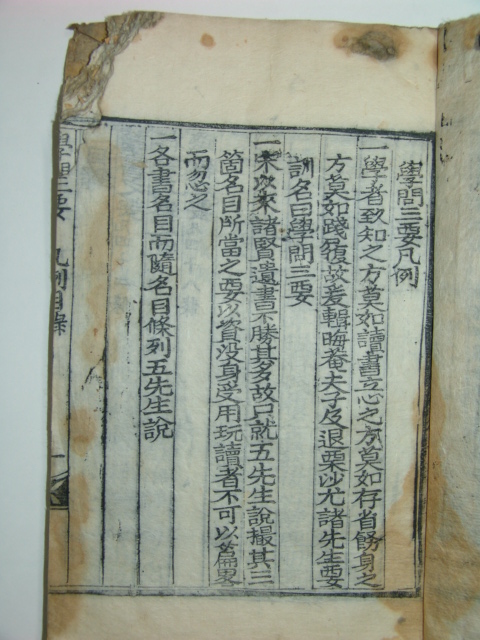 學問三要凡例
一學者致知之方莫如讀書立心之方莫如存省飭身之
方莫如踐履故爰輯晦菴夫子及退栗沙尤諸先生要
訓名曰學問三要
一宋以來諸賢遺書不勝其多故只就五先生說撮其三
箇名目所當之要以資没身受用玩讀者不可以篇畧
而忽之
一各書名目而隨名目條列五先生說
學問三要 凡例目錄 一